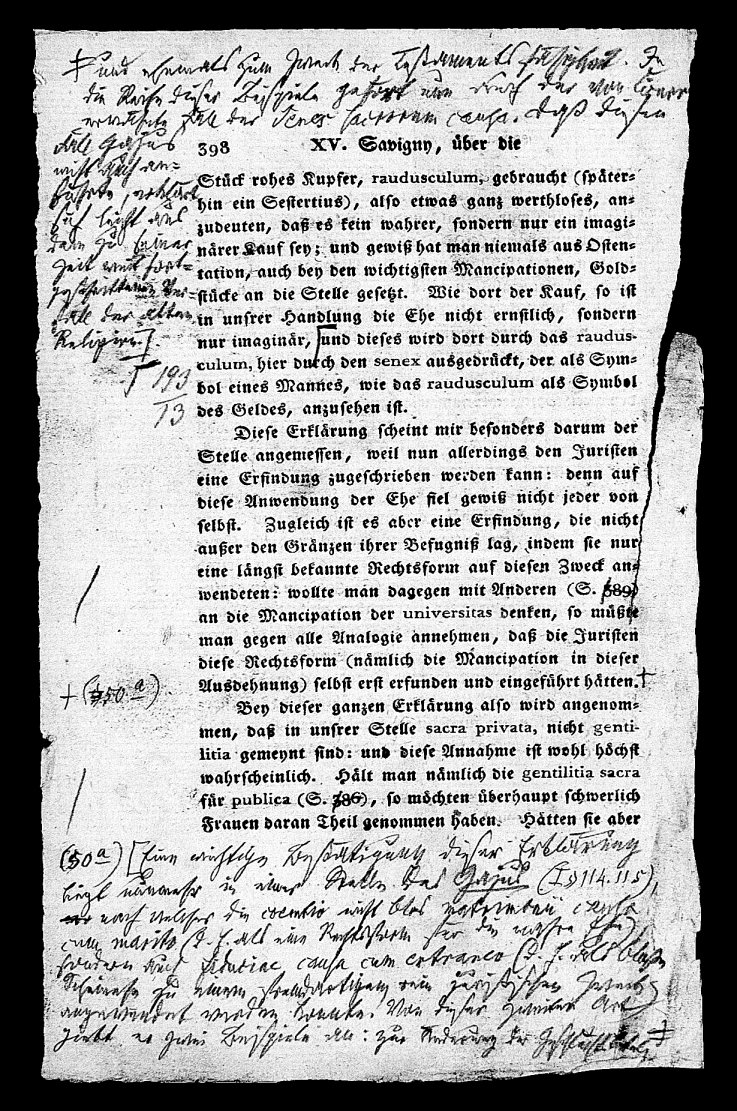 ‡ und ehemals zum Zweck der Testamentsfähigkeit. In
die Reihe dieser Beispiele gehört nun auch der von Cicero
erwähnte Fall der Senes sacrorum causa. Daß diesen
Fall Gajus
nicht auch an-
führte, erklärt
sich leicht aus
dem zu seiner
Zeit weit fort-
geschrittenen Ver-
fall der alten
Religion.]
193
13
398 XV. Savigny, über die
Stück rohes Kupfer, raudusculum, gebraucht (später-
hin ein Sestertius), also etwas ganz werthloses, an-
zudeuten, daß es kein wahrer, sondern nur ein imagi-
närer Kauf sey; und gewiß hat man niemals aus Osten-
tation, auch bey den wichtigsten Mancipationen, Gold-
stücke an die Stelle gesetzt. Wie dort der Kauf, so ist
in unsrer Handlung die Ehe nicht ernstlich, sondern
nur imaginär, [und dieses wird dort durch das raudus-
culum, hier durch den senex ausgedrückt, der als Sym-
bol eines Mannes, wie das raudusculum als Symbol
des Geldes, anzusehen ist.
Diese Erklärung scheint mir besonders darum der
Stelle angemessen, weil nun allerdings den Juristen
eine Erfindung zugeschrieben werden kann: denn auf
diese Anwendung der Ehe fiel gewiß nicht jeder von
selbst. Zugleich ist es aber eine Erfindung, die nicht
außer den Gränzen ihrer Befugniß lag, indem sie nur
eine längst bekannte Rechtsform auf diesen Zweck an-
wendeten: wollte man dagegen mit Anderen (S. 389)
an die Mancipation der universitas denken, so müßte
man gegen alle Analogie annehmen, daß die Juristen
diese Rechtsform (nämlich die Mancipation in dieser
Ausdehnung) selbst erst erfunden und eingeführt hätten.+
+ (50 a)
Bey dieser ganzen Erklärung also wird angenom-
men, daß in unsrer Stelle sacra privata, nicht genti-
litia gemeynt sind: und diese Annahme ist wohl höchst
wahrscheinlich. Hält man nämlich die gentilitia sacra
für publica (S. 386), so möchten überhaupt schwerlich
Frauen daran Theil genommen haben. Hätten sie aber
(50 a) [Eine wichtige Bestätigung dieser Erklärung
liegt nunmehr in einer Stelle des Gajus (I § 114. 115),
nach welcher die coemtio nicht blos matrimonii causa
cum marito (d. h. als eine Rechtsform für die wahre Ehe)
sondern auch fiduciae causa cum extraneo (d. h. als bloße
Scheinehe zu einem fremdartigen rein juristischen Zweck)
angewendet werden konnte. Von dieser zweiten Art
giebt er zwei Beispiele an: zur Änderung der Geschlechtstutel, ‡